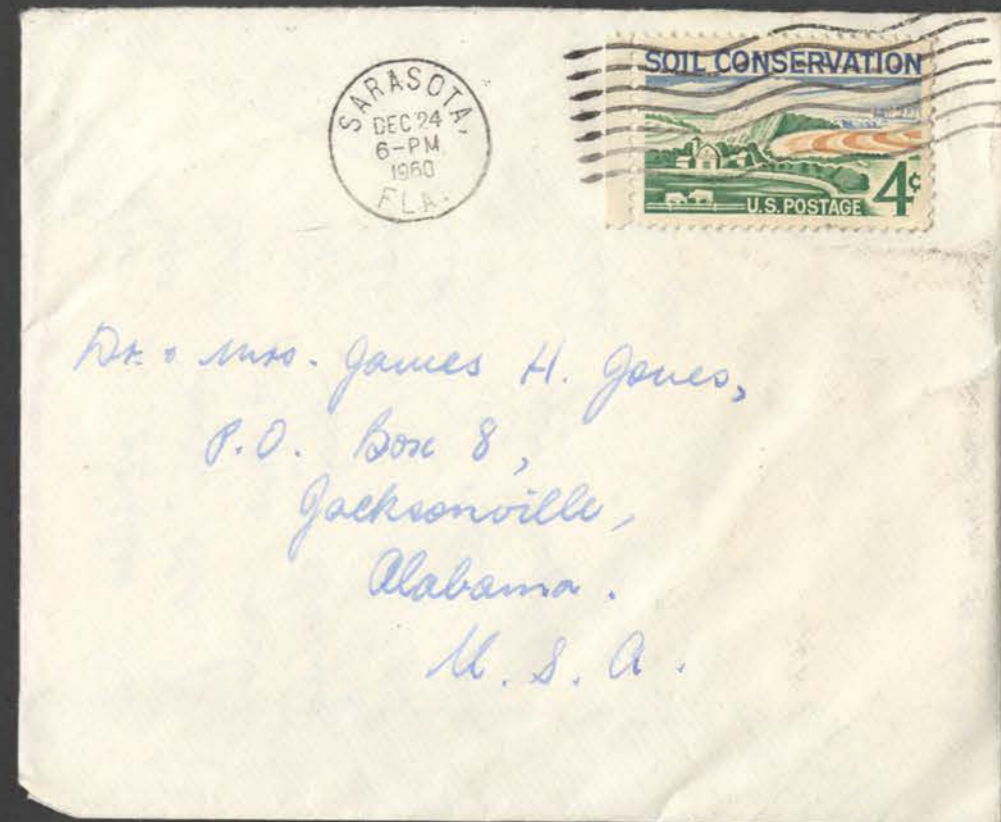 SARASOTA,
DEC 24
6-PM
1960
FLA.
SOIL CONSERVATION
U.S. POSTAGE 4¢
Dr. & Mrs. James H. Jones,
P.O. Box 8,
Jacksonville,
Alabama.
U. S. A.